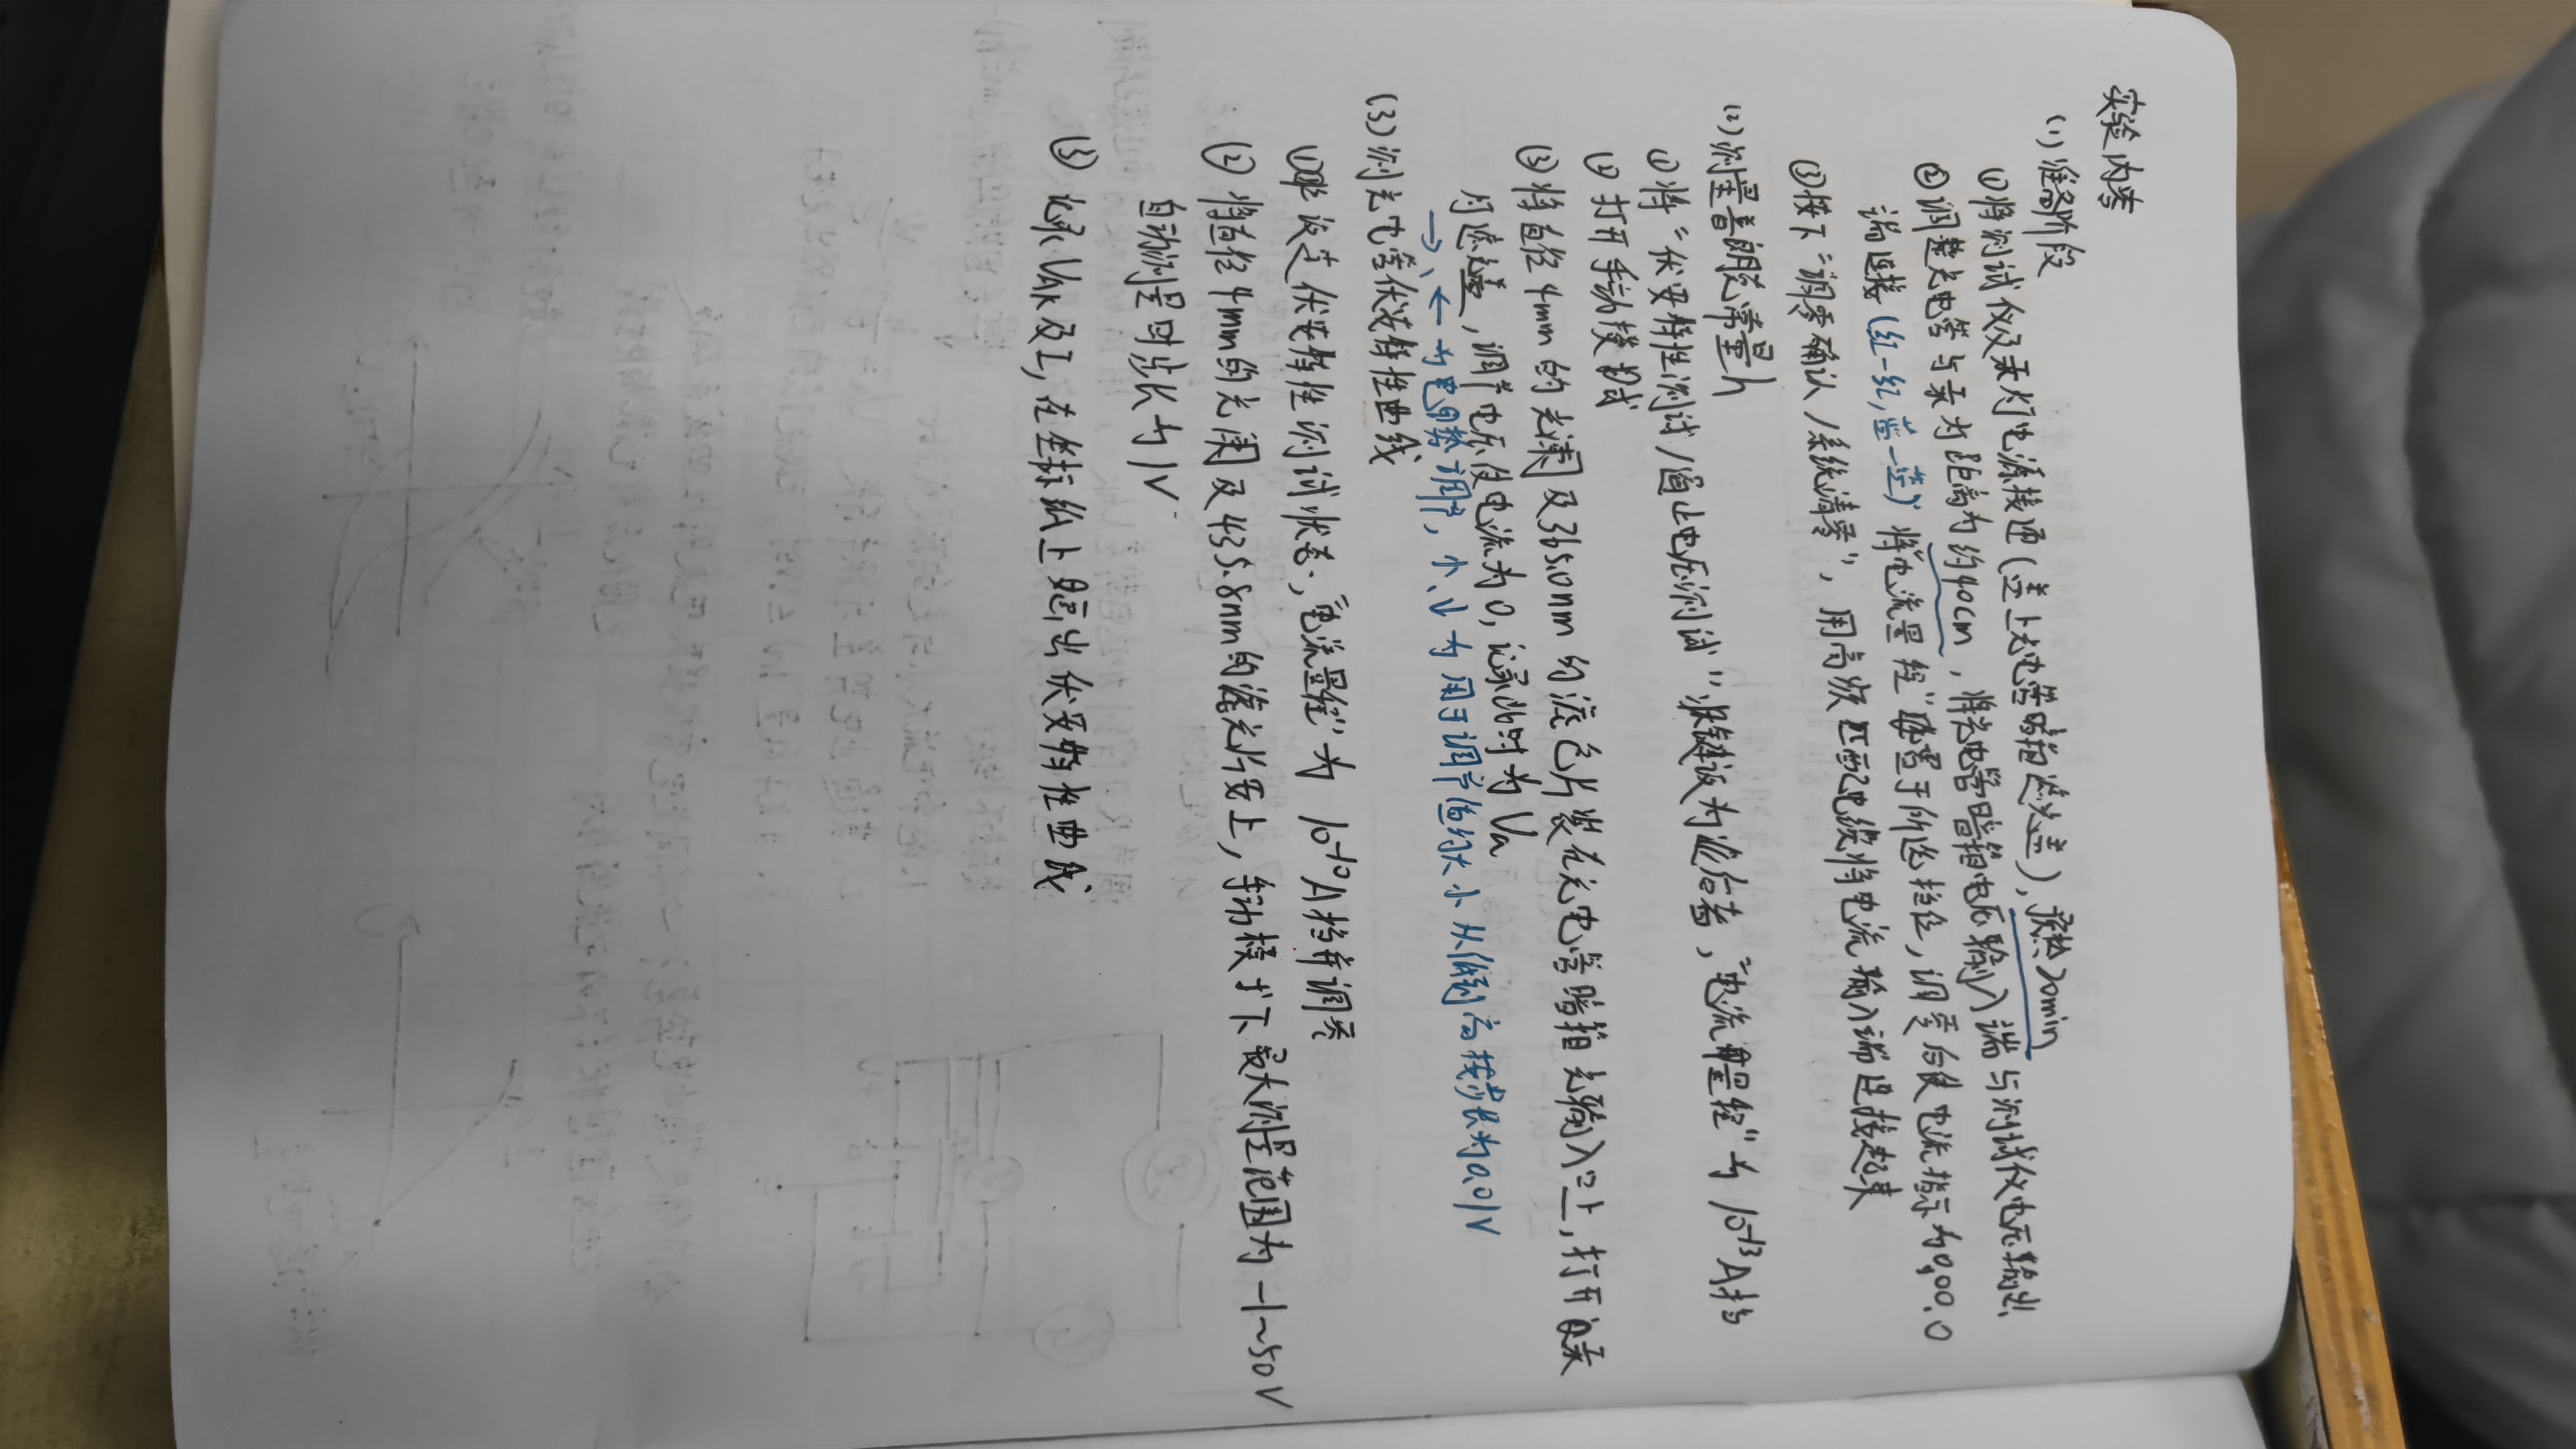 实验内容
(1) 准备阶段
①将测试仪及汞灯电源接通(盖上光电管暗箱遮光盖), 预热20min
②调整光电管与汞灯距离为约40cm, 将光电管暗箱电压输入端与测试仪电压输出
端连接(红-红, 蓝-蓝) 将"电流量程"置于所选挡位, 调零后使电流指示为000.0
③按下"调零确认/系统清零", 用高频匹配电缆将电流输入端连接起来
(2) 测量普朗克常量h
①将"伏安特性测试/遏止电压测试"状键设为后者, "电流量程"为10⁻¹³A挡
②打开手动模式
③将直径4mm的光阑及365.0nm的滤色片装在光电管暗箱光输入口上, 打开汞
灯遮光盖, 调节电压使电流为0, 记录此时为Ua
→、←为电势调节, ↑、↓为用于调节值的大小 从低到高 步长为0.01V
(3) 测光电管伏安特性曲线
①设定伏安特性测试状态, "电流量程"为 10⁻¹⁰A挡并调零
② 将直径4mm的光阑及435.8nm的滤光片安上, 手动模式下最大测量范围为-1~50V
自动测量时步长为1V
③ 记录UAK及I, 在坐标纸上画出伏安特性曲线